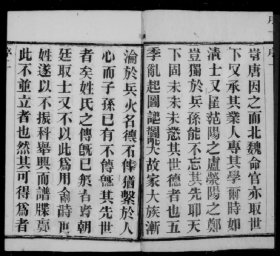 嘗唐因之而北魏命官亦取世
下又承其業人專其學爾時如
清士又崔范陽之盧滎陽之鄭
豈獨於兵孫能不忘其先耶天
下固未未未愁其世德者也五
季亂起圖記 故家大族漸
淪於兵火名德不傳猶繫於人
心而子孫已有不得傳其先世
者矣姓氏之傳旣已 者朝
廷取士又不以此爲用命詩則
姓遂以不振科舉興而譜牒寖
此不並立者也然其可得爲者